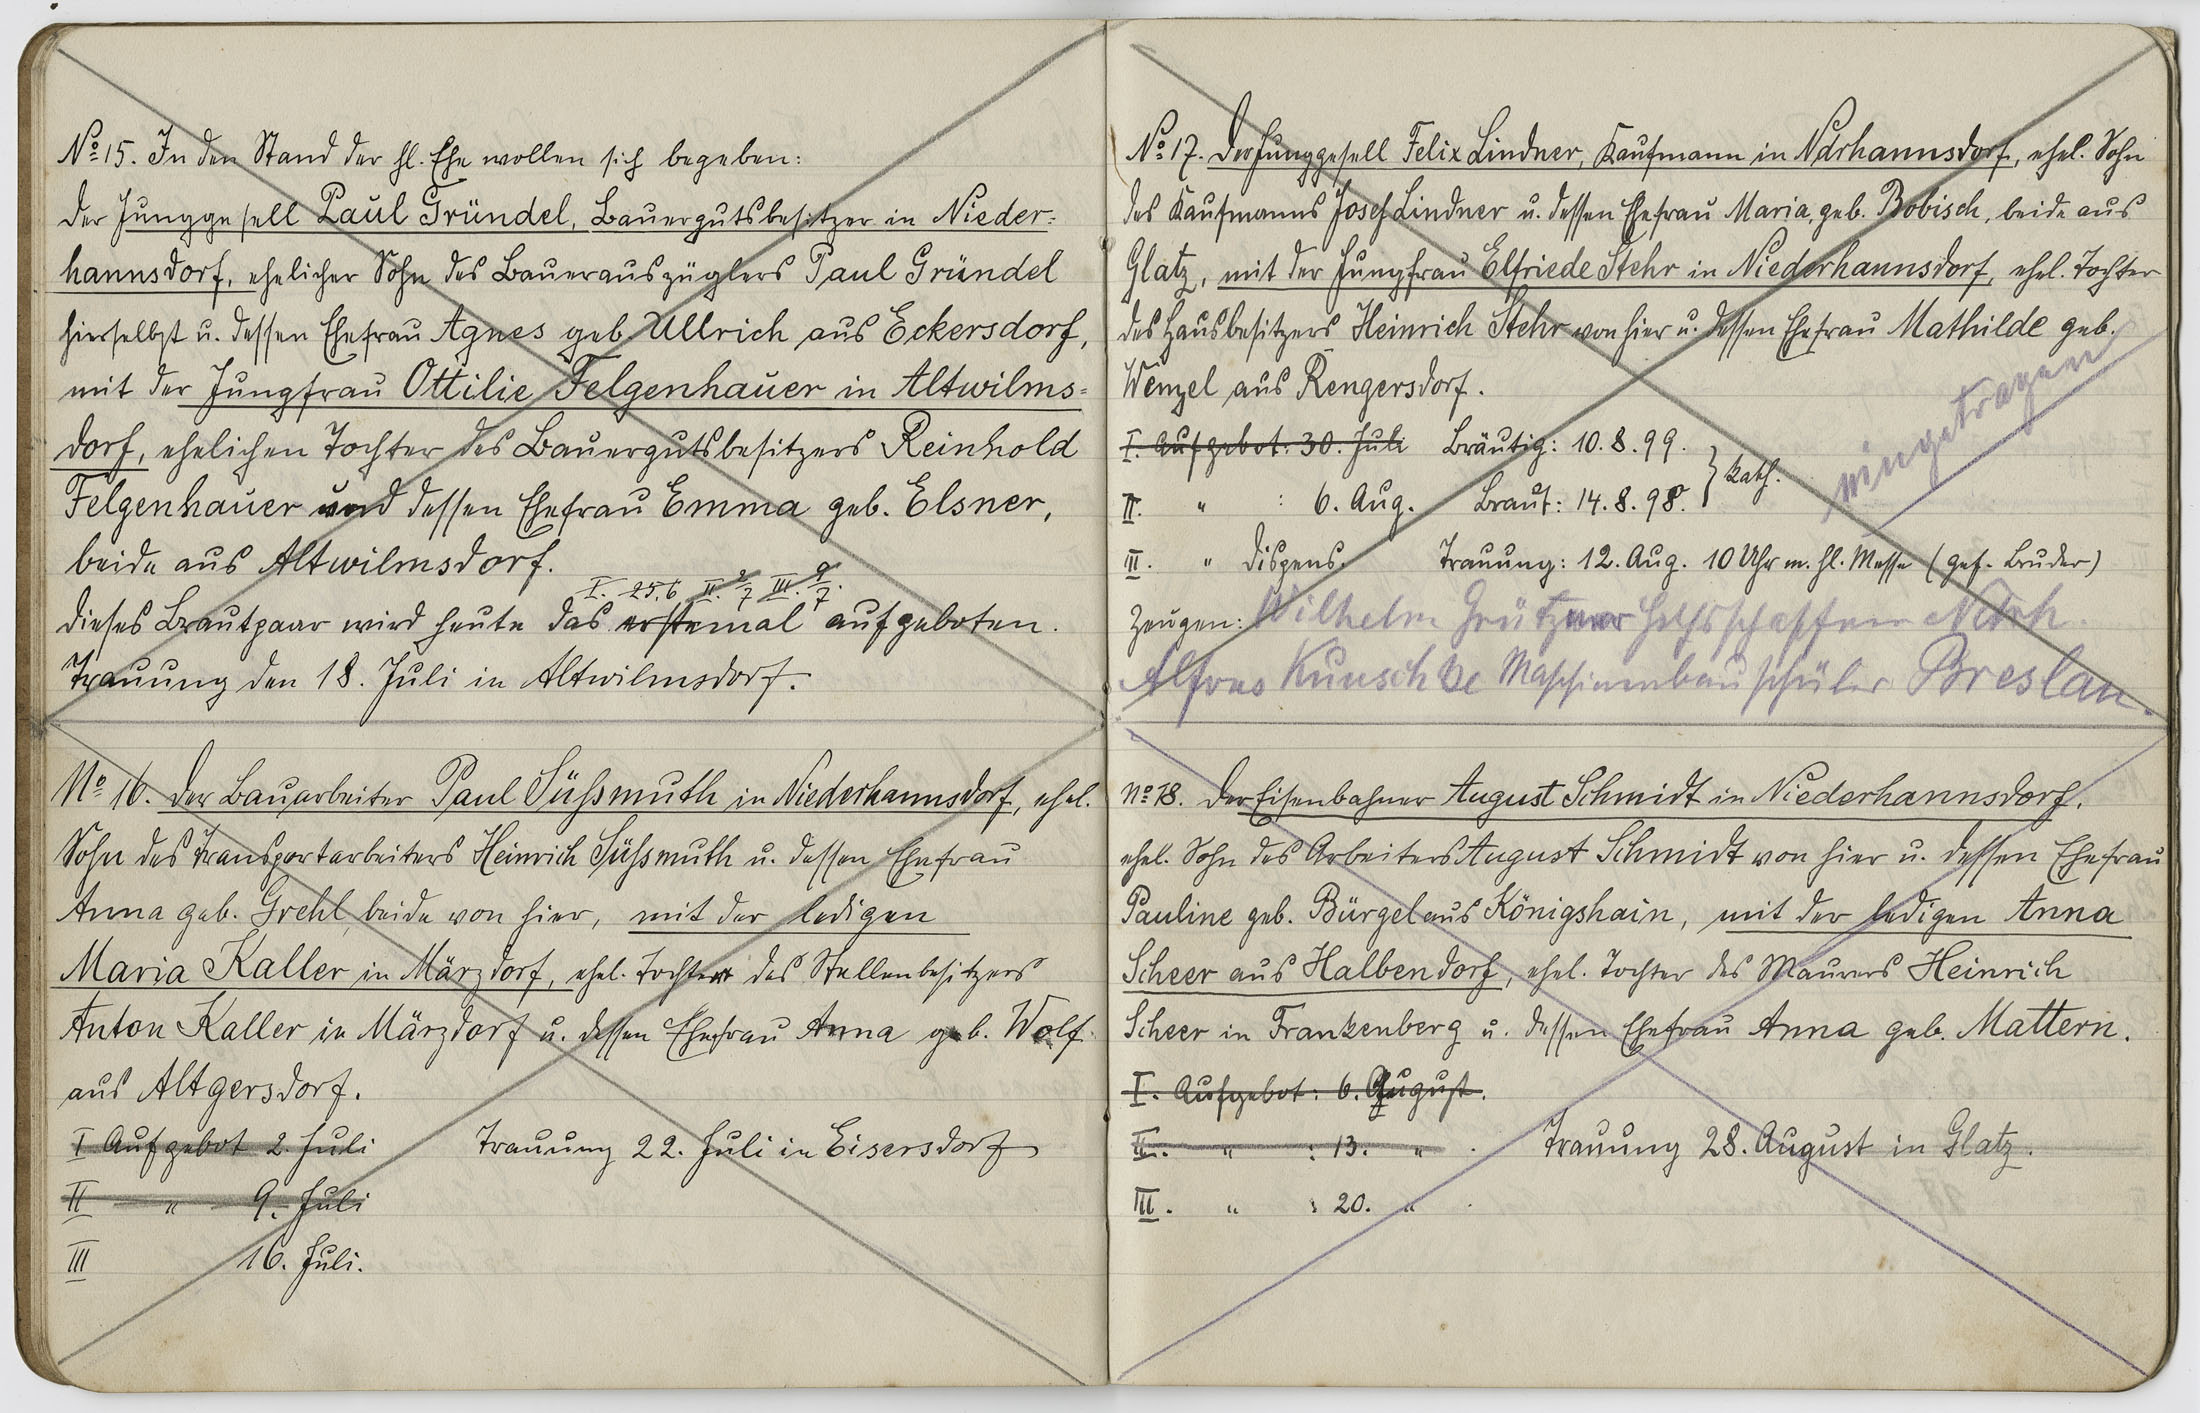 No 15. In den Stand der hl. Ehe wollen sich begeben:
der Junggesell Paul Gründel, Bauergutsbesitzer in Nieder-
hannsdorf, ehelicher Sohn des Bauerauszüglers Paul Gründel
hierselbst u. dessen Ehefrau Agnes geb. Ullrich aus Eckersdorf,
mit der Jungfrau Ottilie Felgenhauer in Altwilms-
dorf, ehelichen Tochter des Bauergutsbesitzers Reinhold
Felgenhauer und dessen Ehefrau Emma geb. Elsner,
beide aus Altwilmsdorf.
I. 25.6 II. 2/7 III. 9/7.
Dieses Brautpaar wird heute das erstemal aufgeboten.
Trauung den 18. Juli in Altwilmsdorf.
No 16. Der Bauarbeiter Paul Süßmuth in Niederhannsdorf, ehel.
Sohn des Transportarbeiters Heinrich Süßmuth u. dessen Ehefrau
Anna geb. Grehl, beide von hier, mit der ledigen
Maria Kaller in Märzdorf, ehel. Tochter des Stellenbesitzers
Anton Kaller in Märzdorf u. dessen Ehefrau Anna geb. Wolf
aus Altgersdorf.
I Aufgebot 2. Juli Trauung 22. Juli in Eisersdorf
II " 9. Juli
III 16. Juli.
No 17. Der Junggesell Felix Lindner, Kaufmann in Ndrhannsdorf, ehel. Sohn
des Kaufmanns Josef Lindner u. dessen Ehefrau Maria, geb. Bobisch, beide aus
Glatz, mit der Jungfrau Elfriede Stehr in Niederhannsdorf, ehel. Tochter
des Hausbesitzers Heinrich Stehr von hier u. dessen Ehefrau Mathilde geb.
Wenzel aus Rengersdorf.
I. Aufgebot: 30. Juli Bräutig: 10.8.99.
II. " : 6. Aug. Braut: 14.8.98. } kath.
eingetragen
III. " Dispens. Trauung: 12. Aug. 10 Uhr m. hl. Messe (gef. Bruder)
Zeugen: Wilhelm Grützner
Alfons Kunschke Maschinenbauschüler Breslau.
No 18. Der Eisenbahner August Schmidt in Niederhannsdorf,
ehel. Sohn des Arbeiters August Schmidt von hier u. dessen Ehefrau
Pauline geb. Bürgel aus Königshain, mit der ledigen Anna
Scheer aus Halbendorf, ehel. Tochter des Maurers Heinrich
Scheer in Frankenberg u. dessen Ehefrau Anna geb. Mattern.
I. Aufgebot: 6. August.
II. " : 13. " . Trauung 28. August in Glatz.
III. " : 20. " .